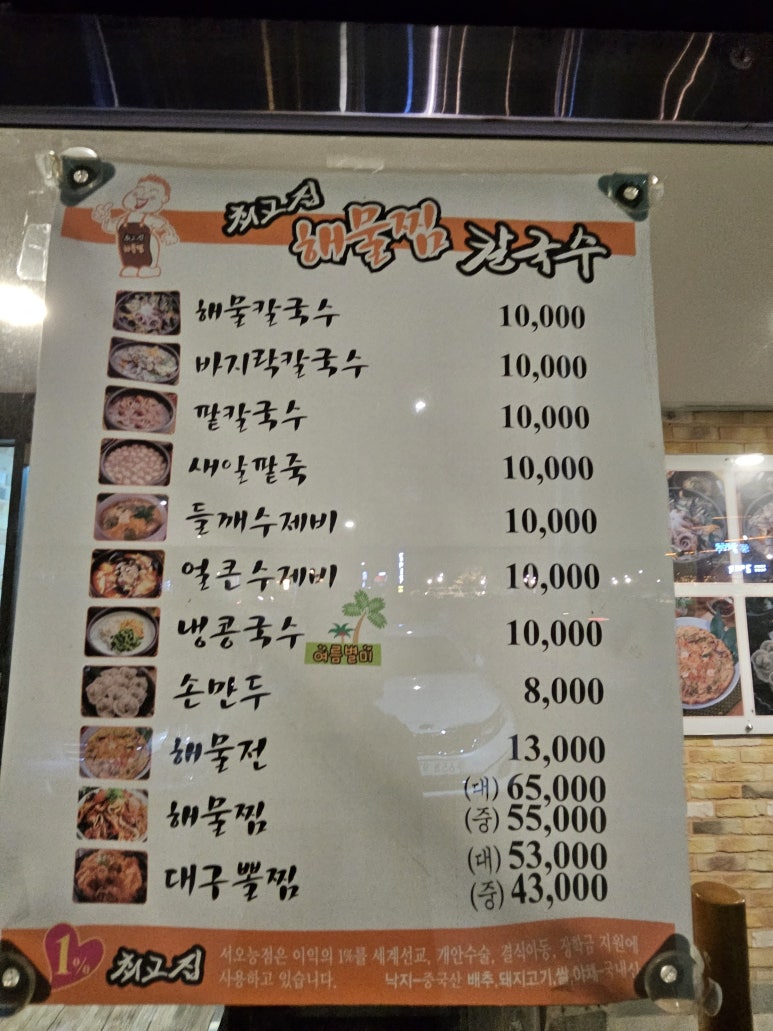 최고집
해물찜 칼국수
최고집
해물칼국수 10,000
바지락칼국수 10,000
팥칼국수 10,000
새알팥죽 10,000
들깨수제비 10,000
얼큰수제비 10,000
냉콩국수 10,000
여름별미
손만두 8,000
해물전 13,000
해물찜 (대) 65,000
(중) 55,000
대구뽈찜 (대) 53,000
(중) 43,000
1%
최고집
서오능점은 이익의 1%를 세계선교, 개안수술, 결식아동, 장학금 지원에
사용하고 있습니다. 낙지-중국산 배추,돼지고기,쌀,야채-국내산